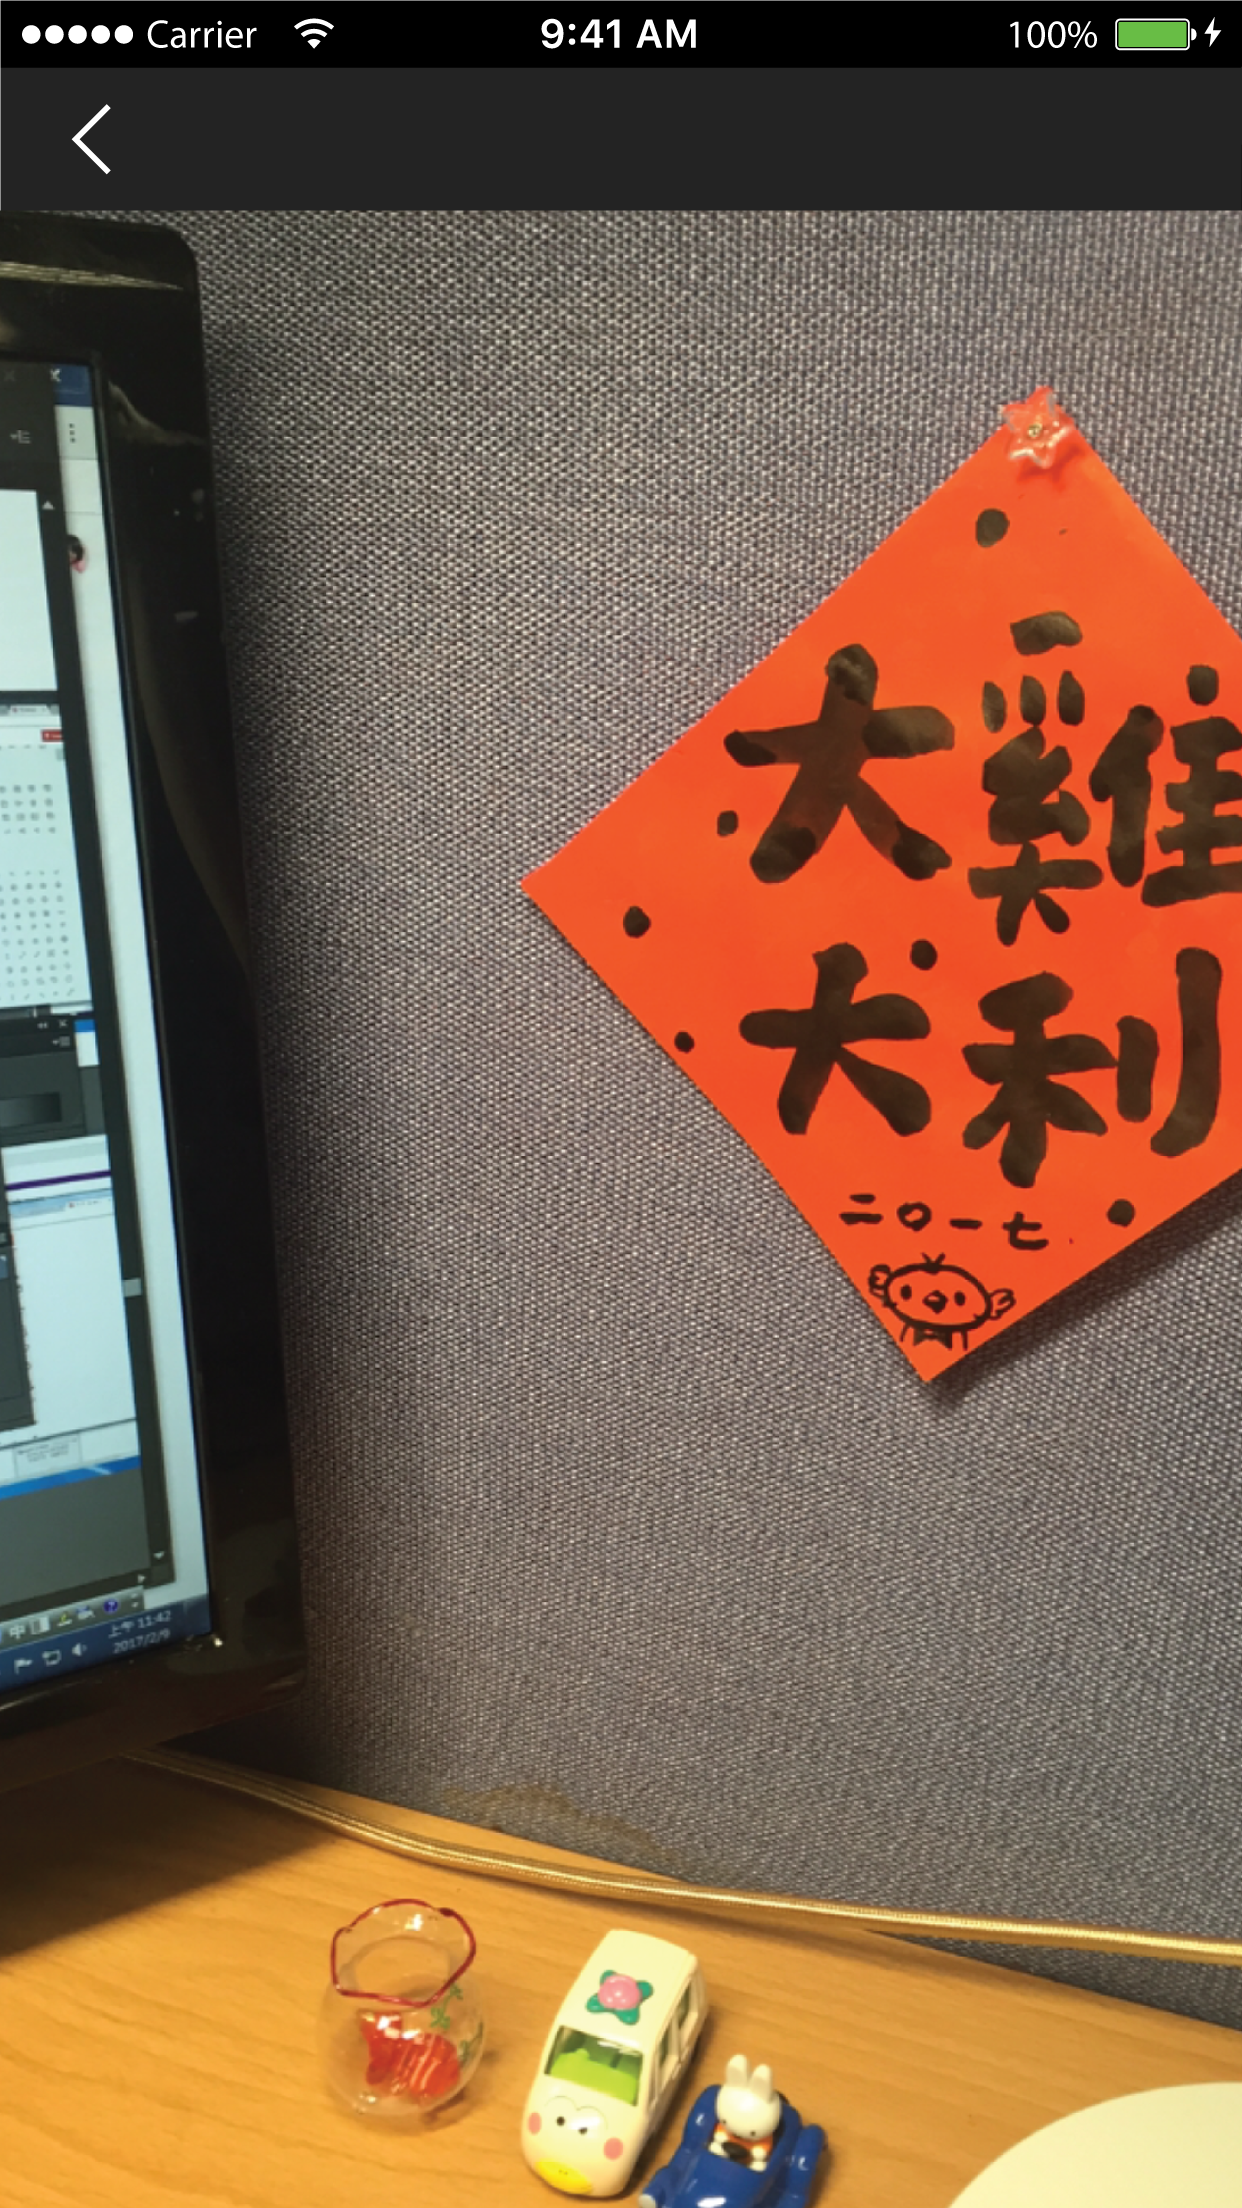 Carrier 9:41 AM 100%
大雞
大利
二〇一七
中
上午 11:42
2017/2/9